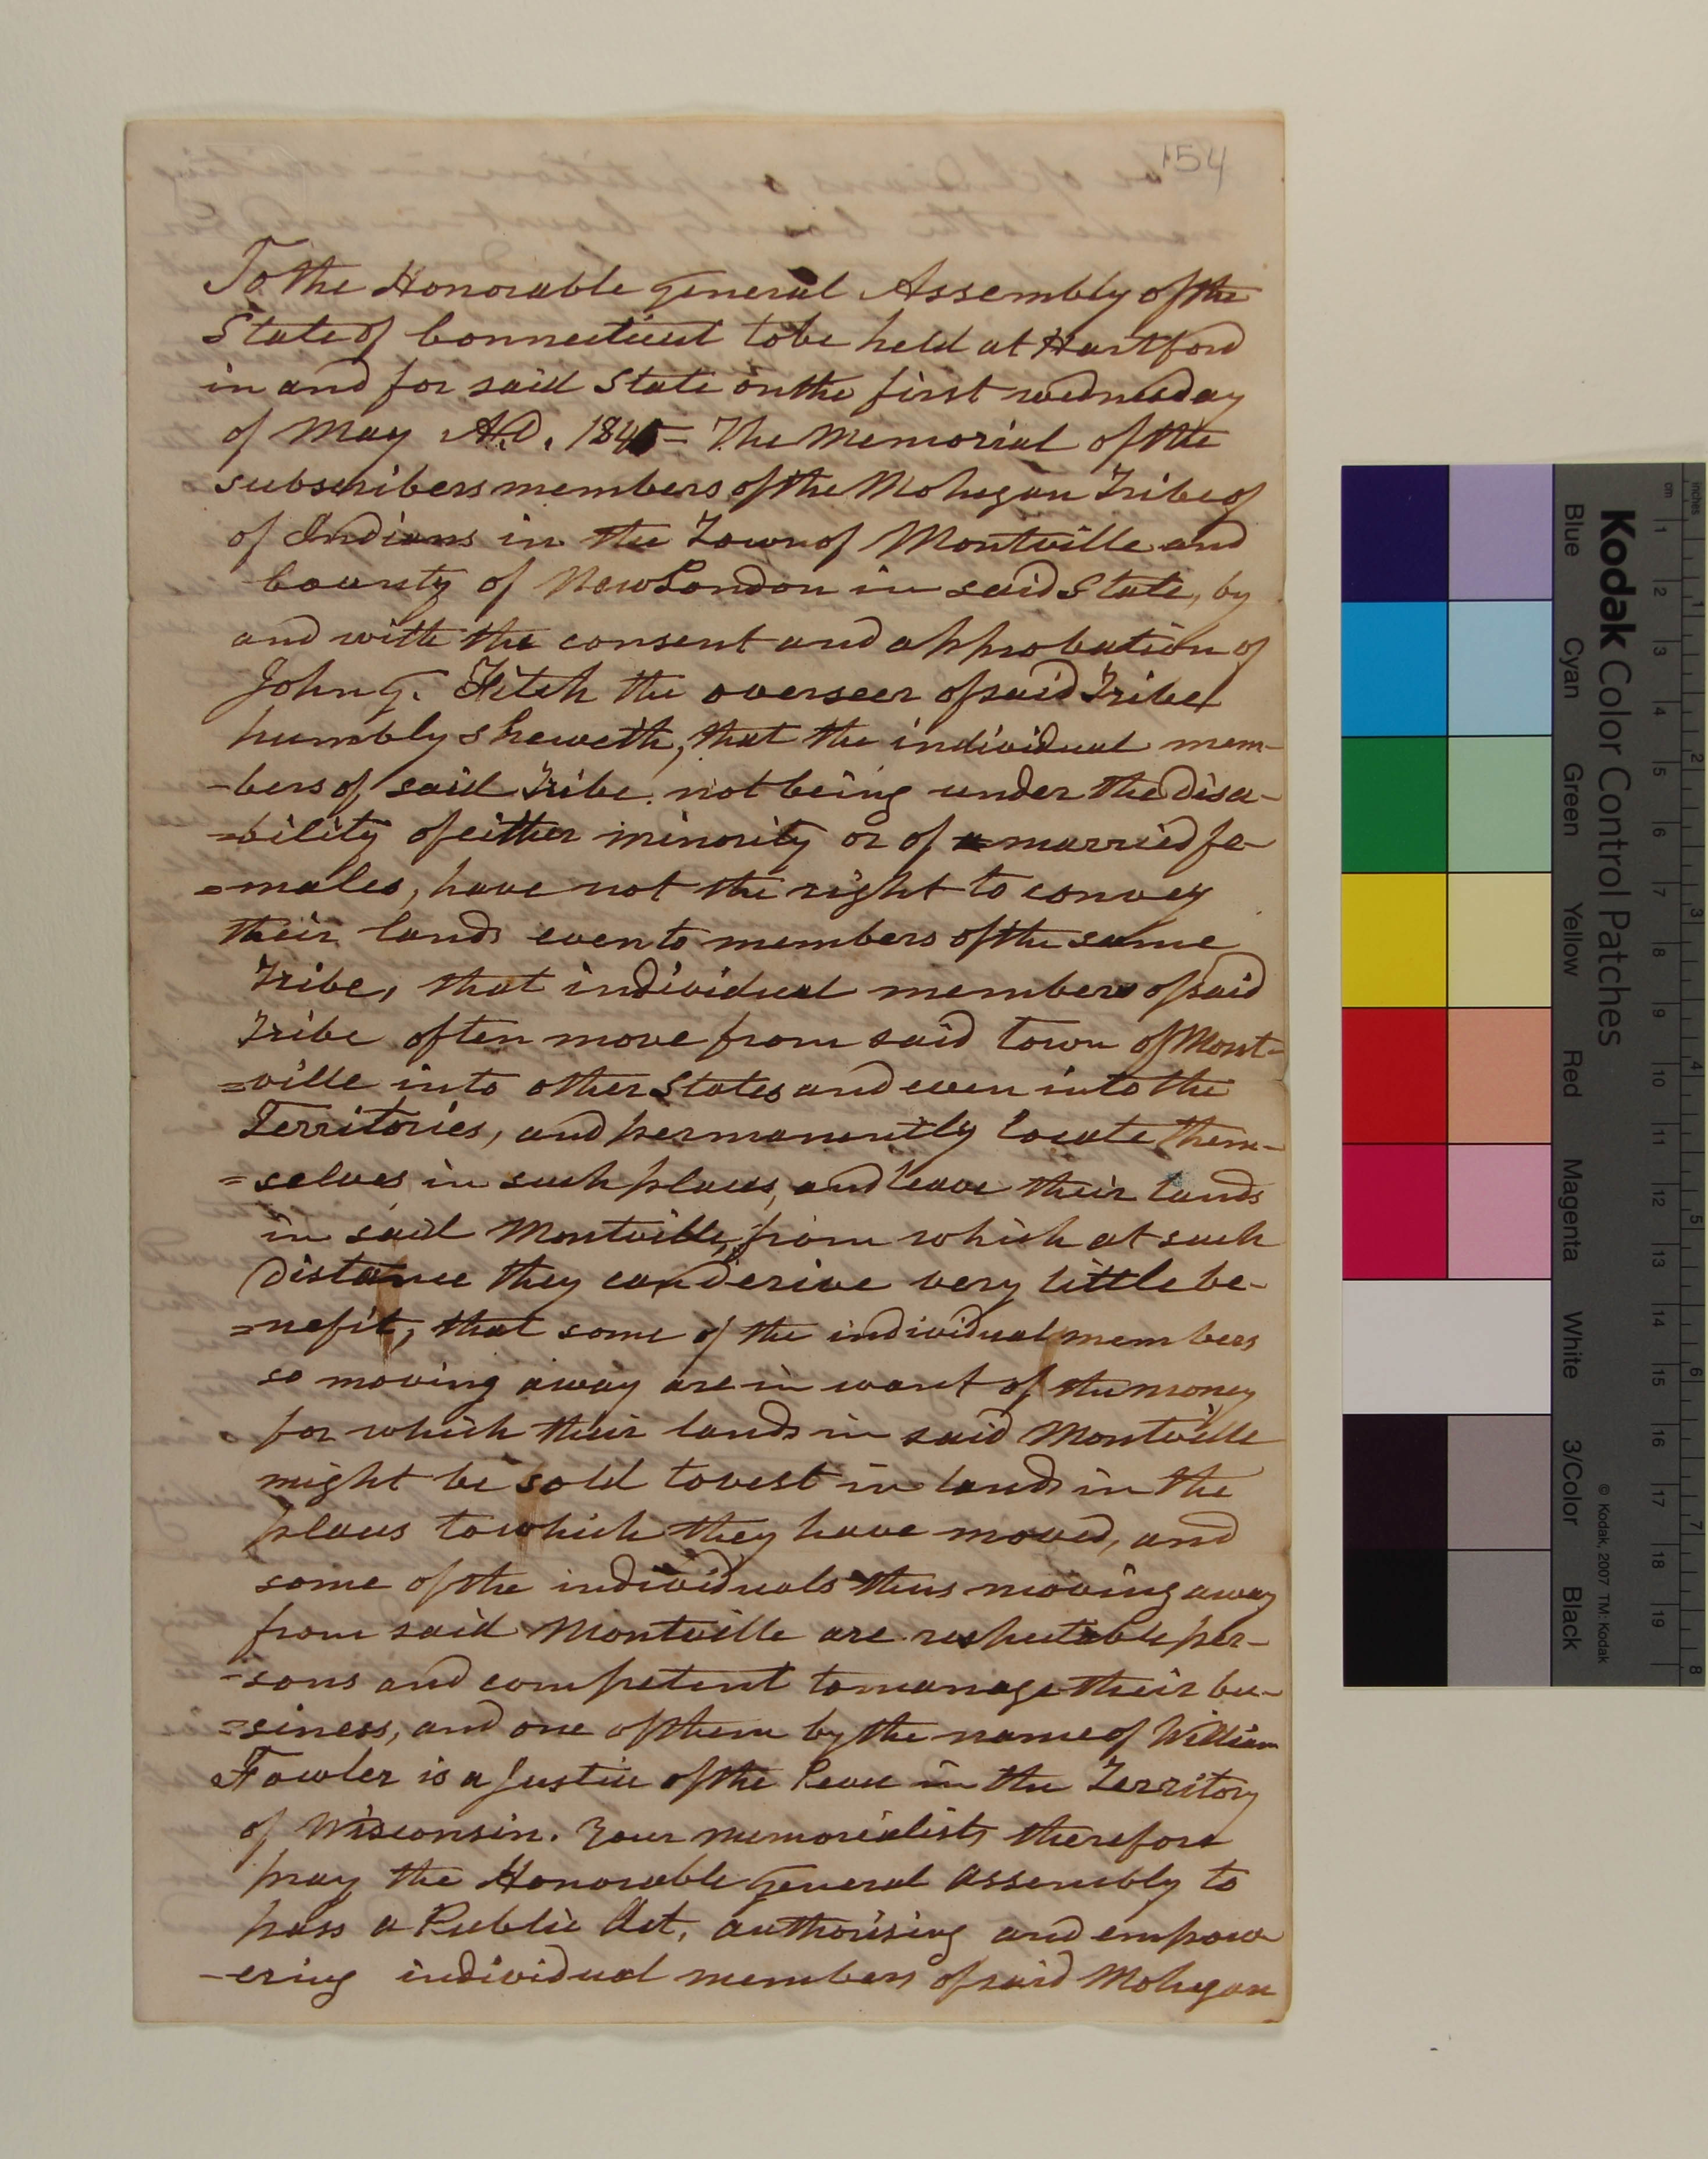 154
To the Honorable General Assembly of the
State of Connecticut to be held at Hartford
in and for said State on the first wednesday
of May A.D. 1845= The Memorial of the
subscribers members of the Mohegan Tribe of
of Indians in the Town of Montville and
County of New London in said State, by
and with the consent and approbation of
John G. Fitch the overseer of said Tribe
humbly sheweth, that the individual mem-
-bers of said Tribe not being under the disa-
=bility of either minority or of married fe-
=males, have not the right to convey
their lands even to members of the same
Tribe, that individual members of said
Tribe often move from said town of Mont-
=ville into other States and even into the
Territories, and permanently locate them-
=selves in such places, and leave their lands
in said Montville, from which at such
distance they can derive very little be-
=nefit, that some of the individual members
so moving away are in want of the money
for which their lands in said Montville
might be sold to vest in lands in the
places to which they have moved, and
some of the individuals thus moving away
from said Montville are respectable per-
-sons and competent to manage their bu-
=siness, and one of them by the name of William
Fowler is a Justice of the Peace in the Territory
of Wisconsin. Your memorialists therefore
pray the Honorable General Assembly to
pass a Public Act, authorising and empow
-ering individual members of said Mohegan
Kodak Color Control Patches
Blue Cyan Green Yellow Red Magenta White 3/Color Black
© Kodak, 2007 TM: Kodak
inches 1 2 3 4 5 6 7 8
cm 1 2 3 4 5 6 7 8 9 10 11 12 13 14 15 16 17 18 19